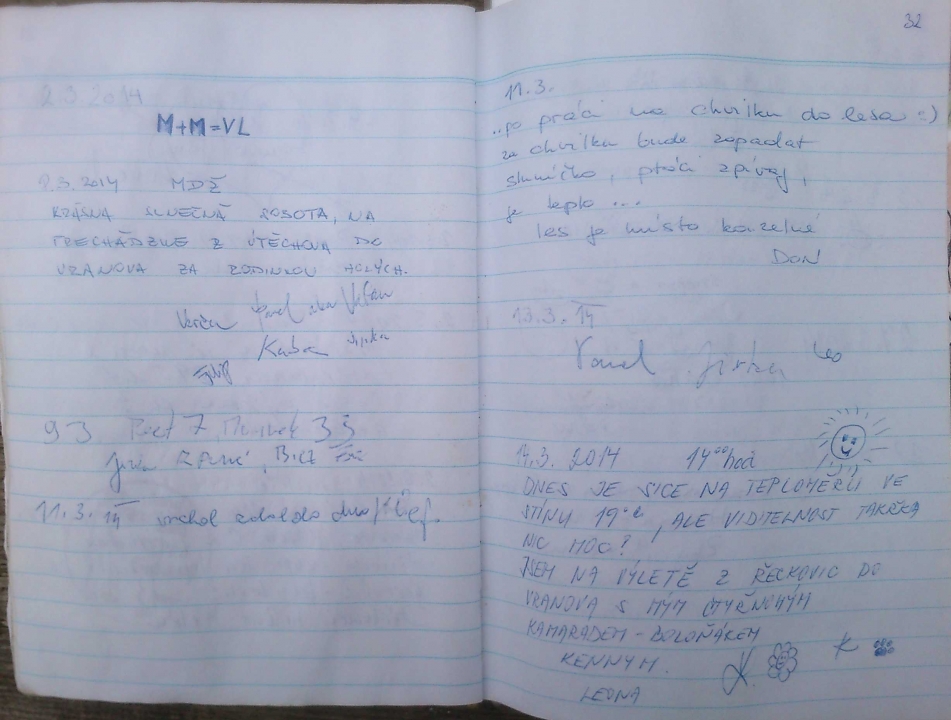 2.3.2014
M+M=VL
8.3.2014 MDŽ
KRÁSNÁ SLUNEČNÁ SOBOTA, NA
PŘECHÁDZKE Z ÚTĚCHOVA DO
VRANOVA ZA RODINKOU HOLÝCH.
Verča Pavel
Kuba
Filip
9 3
11.3. 14 vrchol
32
11.3.
..po práci na chvilku do lesa :)
za chvilku bude zapadat
sluníčko, ptáci zpívaj,
je teplo ...
les je místo kouzelné
DON
13.3. 14
Pavel Jirka Leo
14.3. 2014 14ºº hod
DNES JE SICE NA TEPLOMĚRU VE
STÍNU 19°C, ALE VIDITELNOST TAKŘKA
NIC MOC?
JSEM NA VÝLETĚ Z ŘEČKOVIC DO
VRANOVA S MÝM ČTYŘNOHÝM
KAMARÁDEM - BOLOŇÁKEM
KENNYM.
LEONA